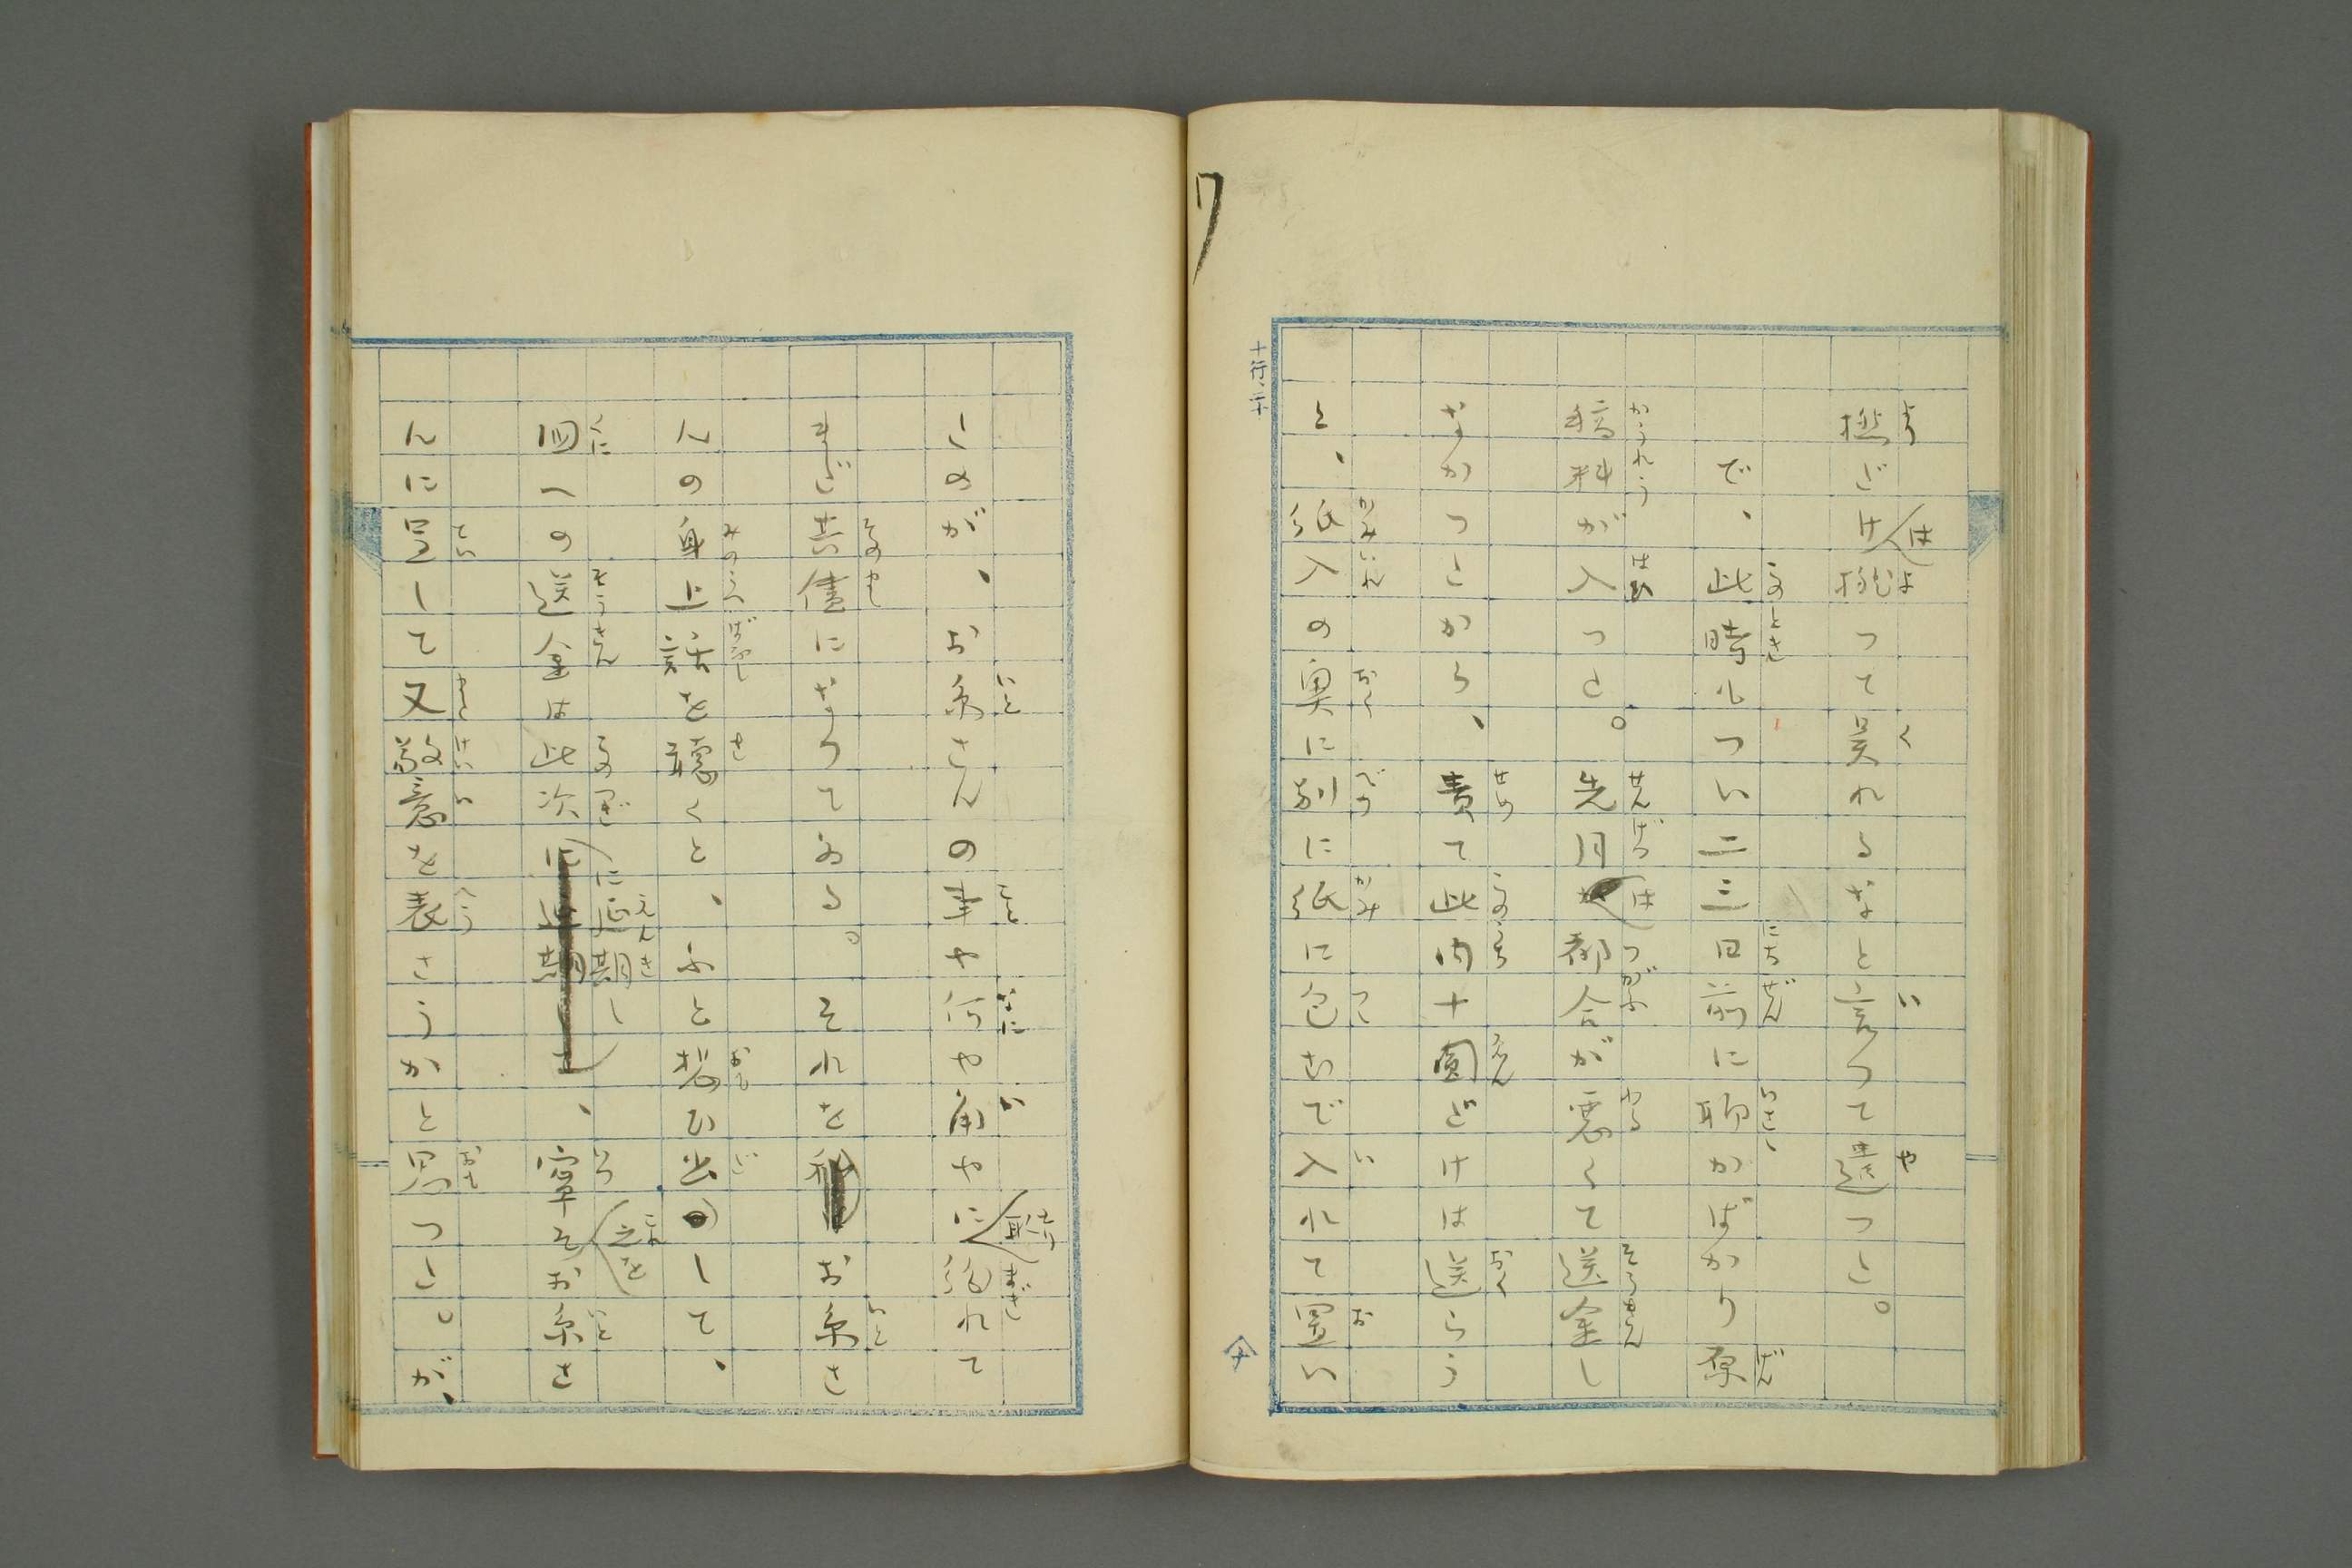 だけはつて呉れるなと言つて遣つた。
で、此時もつい二三日前に聊かばかり原
稿料が入つた。先月は都合が悪くて送金し
なかつたから、責て此内十圓だけは送らう
と、紙入の奥に別に紙に包んで入れて置い
たのが、お糸さんの事や何や角やに取紛れて
まだ其儘になつてゐる。それをお糸さ
んの身上話を聴くと、ふと想ひ出して、
国への送金は此次に延期し、寧そ之をお糸さ
んに呈して又敬意を表さうかと思つた。が、
十行二十